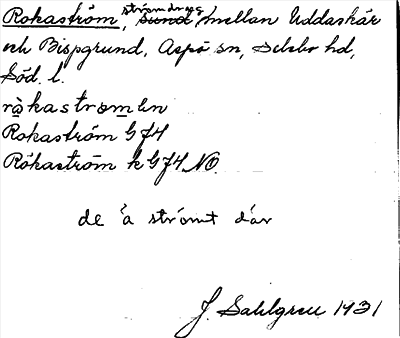 Rokaström, strömdrag mellan Uddaskär
och Bispgrund, Aspö sn, Selebo hd,
Söd. l.
rå̀kastrømen
Rokaström GJ4
Rökaström k GJ4 NO.
de ´a strömt där
J. Sahlgren 1931